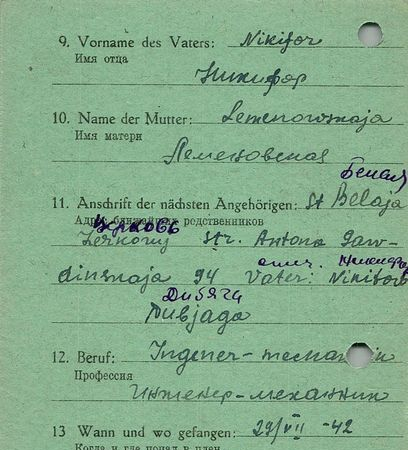 9. Vorname des Vaters: Nikifor
Имя отца
Никифор
10. Name der Mutter: Lemenowskaja
Имя матери
Лемеховская
Белая
11. Anschrift der nächsten Angehörigen: st Belaja
Адрес ближайших родственников
Церковь
Zerkowy str. Antona Saw-
dinskaja 94 Vater: Nikifor
отч. Никифор
Дибяга
Dubjaga
12. Beruf: Ingener-mechanik
Профессия
Инженер-механник
13 Wann und wo gefangen: 29/VII -42
Когда и где попал в плен